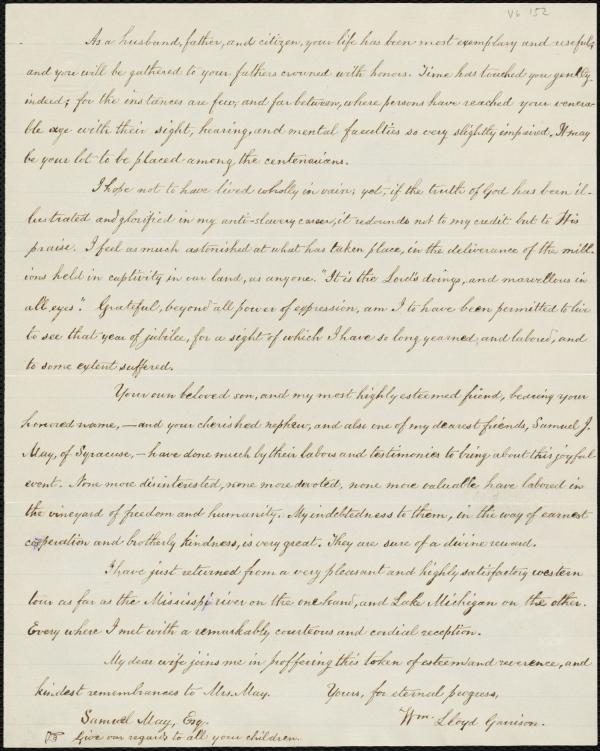 V6 152
As a husband, father, and citizen, your life has been most exemplary and useful;
and you will be gathered to your fathers crowned with honors. Time has touched you gently
indeed; for the instances are few, and far between, where persons have reached your venera-
ble age with their sight, hearing, and mental faculties so very slightly impaired. It may
be your lot to be placed among the centenarians.
I hope not to have lived wholly in vain; yet, if the truth of God has been il-
lustrated and glorified in my anti-slavery career, it redounds not to my credit but to His
praise. I feel as much astonished at what has taken place, in the deliverance of the mill-
ions held in captivity in our land, as anyone. "It is the Lord's doings, and marvellous in
all eyes". Grateful, beyond all power of expression, am I to have been permitted to live
to see that year of jubilee, for a sight of which I have so long yearned, and labored, and
to some extent suffered.
Your own beloved son, and my most highly esteemed friend, bearing your
honored name, — and your cherished nephew, and also one of my dearest friends, Samuel J.
May, of Syracuse, — have done much by their labors and testimonies to bring about this joyful
event. None more disinterested, none more devoted, none more valuable have labored in
the vineyard of freedom and humanity. My indebtedness to them, in the way of earnest
cooperation and brotherly kindness, is very great. They are sure of a divine reward.
I have just returned from a very pleasant and highly satisfactory western
tour as far as the Mississippi river on the one hand, and Lake Michigan on the other.
Every where I met with a remarkably courteous and cordial reception.
My dear wife joins me in proffering this token of esteem and reverence, and
kindest remembrances to Mrs. May. Yours, for eternal progress,
Samuel May, Esq. Wm. Lloyd Garrison.
☞ Give our regards to all your children.